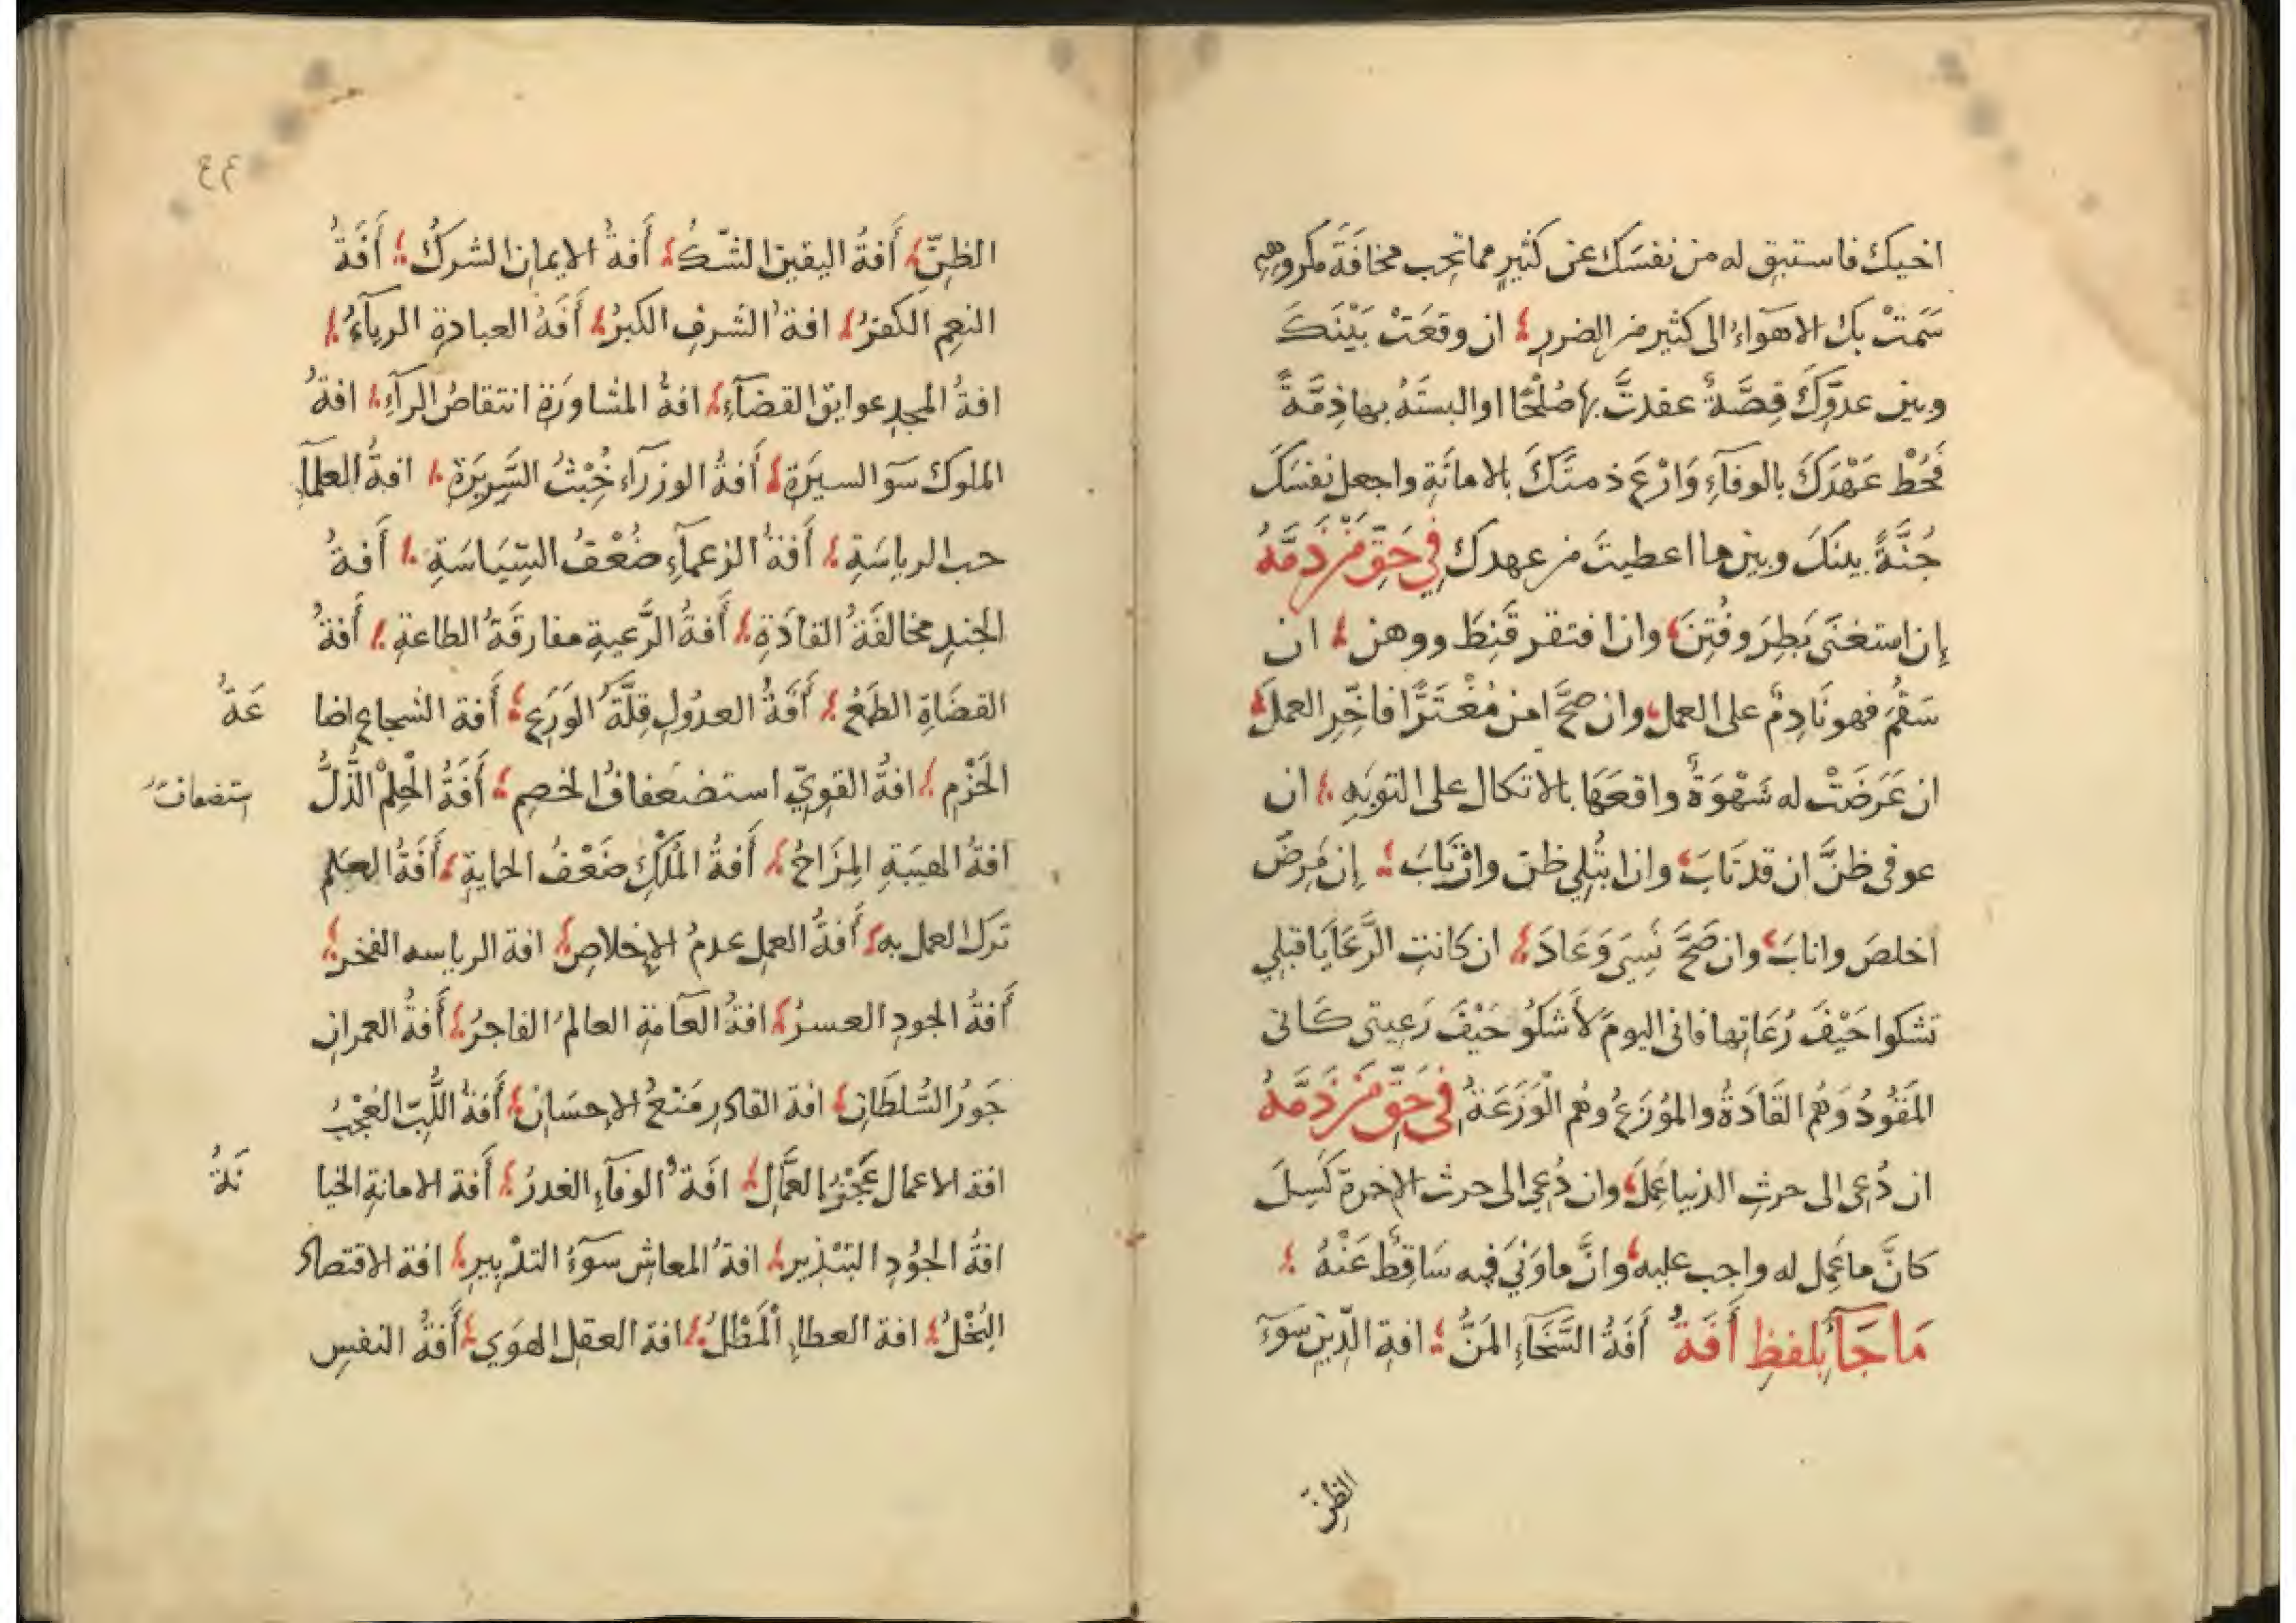 اخيك فاستبق له من نفسَك عن كثيرٍ مما تحِب مخافَةَ مكروهٍ
سَمَتْ بك الاهوَاءُ الى كثير من الضرر ؛ ان وقعَتْ بَيْنَكَ
وبين عدوِّكَ قِصَّةٌ عقدتَّ بها صُلْحًا او البستَهُ بها ذِمَّةً
فَحُطْ عَهْدَكَ بالوفآءِ وَارْعَ ذمتَّكَ بالامانَةِ واجعل نفسَكَ
جُنَّةً بينكَ وبين ما اعطيتَ من عهدك فِي حَقِّ مَنْ ذَمَّهُ
إن استغنَى بَطِرَ وفُتِنَ؛ وان افتقر قَنِطَ ووهن ؛ ان
سَقُمَ فهو نَادِمٌ على العمل؛ وان صحَّ امن مُغْتَرًّا فاخِّرِ العمل؛
ان عَرَضَتْ له شَهْوَةٌ واقعَهَا بالاتكال على التوبَه ؛ ان
عوفى ظنَّ ان قد تَابَ؛ وان ابتُلِي ظن وارْتَابَ ؛ إن مَرِضَ
اخلصَ وانابَ؛ وان صَحَّ نَسِىَ وَعَادَ؛ ان كانتِ الرَّعَايَا قبلِي
تشكوا حَيْفَ رُعَاتِها فانى اليومَ لأَشكُو حَيْفَ رَعِيتى كَانى
المَقُودُ وَهُم القَادَةُ والموُزَعُ وهُم الْوَزَعَةُ فى حَقِّ مَنْ ذَمَّهُ
ان دُعى الى حرثِ الدنيا عَمِلَ؛ وان دُعِى الى حرث الاخرة كَسِلَ
كانَّ ما عَمِل له واجب عليه؛ وانَّ ما وَنَى فيه سَاقِطٌ عَنْهُ ؛
مَا جَآءَ بلفظِ أَفَةُ أَفَةُ السَّخَآءِ المَنُّ ؛ افة الدِّينِ سوَء
الظنِّ
٤٣
الظنِّ؛ أَفةُ اليقين الشّكُ؛ أَفةُ الايمان الشركُ؛ أَفَةُ
النعِم الكفرُ؛ افةُ الشرفِ الكبرُ؛ أَفَةُ العبادةِ الريآءُ؛
افةُ المجدِ عوايق القضآءِ؛ افةُ المشاوَرَةِ انتقاصُ الرآءِ؛ افةُ
الملوك سوَ السيرَةِ؛ أَفةُ الوزرآء خُبْثُ السَّرِيرَةِ ؛ افةُ العلمآءِ
حب الرياسَةِ ؛ أَفةُ الزعمآءِ ضُعْفُ السِّيَاسَةِ ؛ أَفةُ
الجندِ مخالفَةُ القادَةِ؛ أَفةُ الرَّعيةِ مفارقَةُ الطاعةِ ؛ أَفةُ
القضَاةِ الطَمَعُ ؛ أَفَةُ العدُولِ قِلَّةُ الوَرَعِ؛ أَفة الشجاع اضا عَةُ
الحَزْمِ ؛ افةُ القوِىّ استضعَافُ الخصِم ؛ أَفَةُ الْحِلْمِ الذُّلُّ استضعافُ
افةُ الهيَبةِ المِزَاحُ؛ أَفةُ المُلْكِ ضَعْفُ الحمايةِ ؛ أَفَةُ العِلم
ترك العمل به؛ أَفةُ العملِ عدمُ الإخلاصِ؛ افة الرياسه الفخر؛
أَفةُ الجودِ العسرُ؛ افةُ العَآمةِ العالمُ الفاجرُ؛ أَفةُ العمرانِ
جَورُ السُّلطَانِ؛ افة القادرِ مَنْعُ الاحسَانِ؛ أَفةُ اللُّبِّ العُجْبُ
افة الاعمال عَجْزُ العمَّالِ؛ افَةُ الوفآءِ الغدرُ؛ أَفة الامانةِ الخيا نَةُ
افةُ الجوُدِ التبْذير؛ افةُ المعاشِ سوَءُ التدْبيرِ؛ افة الاقتصادِ
البُخْلُ؛ افة العطاءِ المَطْلُ؛ افة العقلِ الهوَى؛ أَفةُ النفسِ